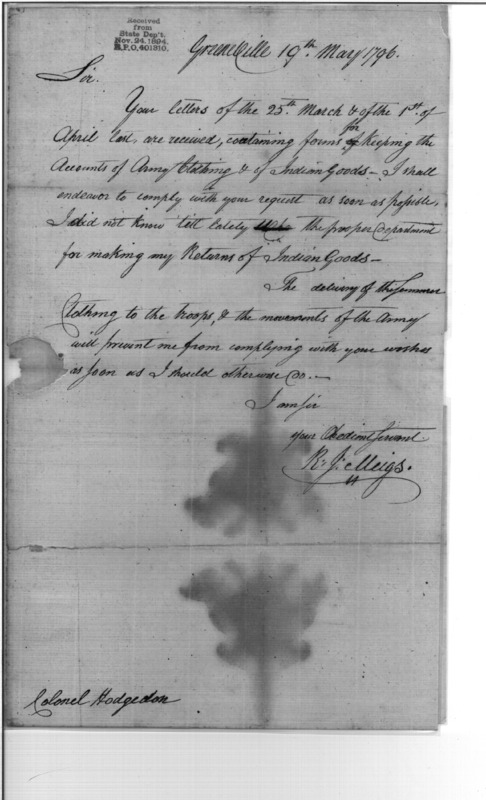 Received
from
State Dep't.
Nov. 24, 1894.
R.P.O, 401310.
Greeneville 19th May 1796.
Sir.
Your letters of the 25th March & of the 1st. of
April last, are received, containing forms for keeping the
Accounts of Army Clothing & of Indian Goods – I shall
endeavor to comply with your request as soon as possible,
I did not know till lately the proper Department
for making my Returns of Indian Goods –
The delivery of the Summer
Clothing to the troops, & the movements of the Army
will prevent me from complying with your wishes
as soon as I should otherwise do. –
I am sir
your Obedient Servant
R. J. Meigs.
Colonel Hodgedon